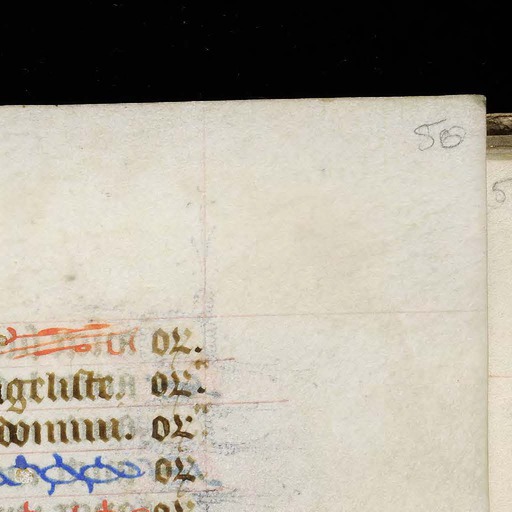 50
5
or.
geliste. or.
domini. or
or
or